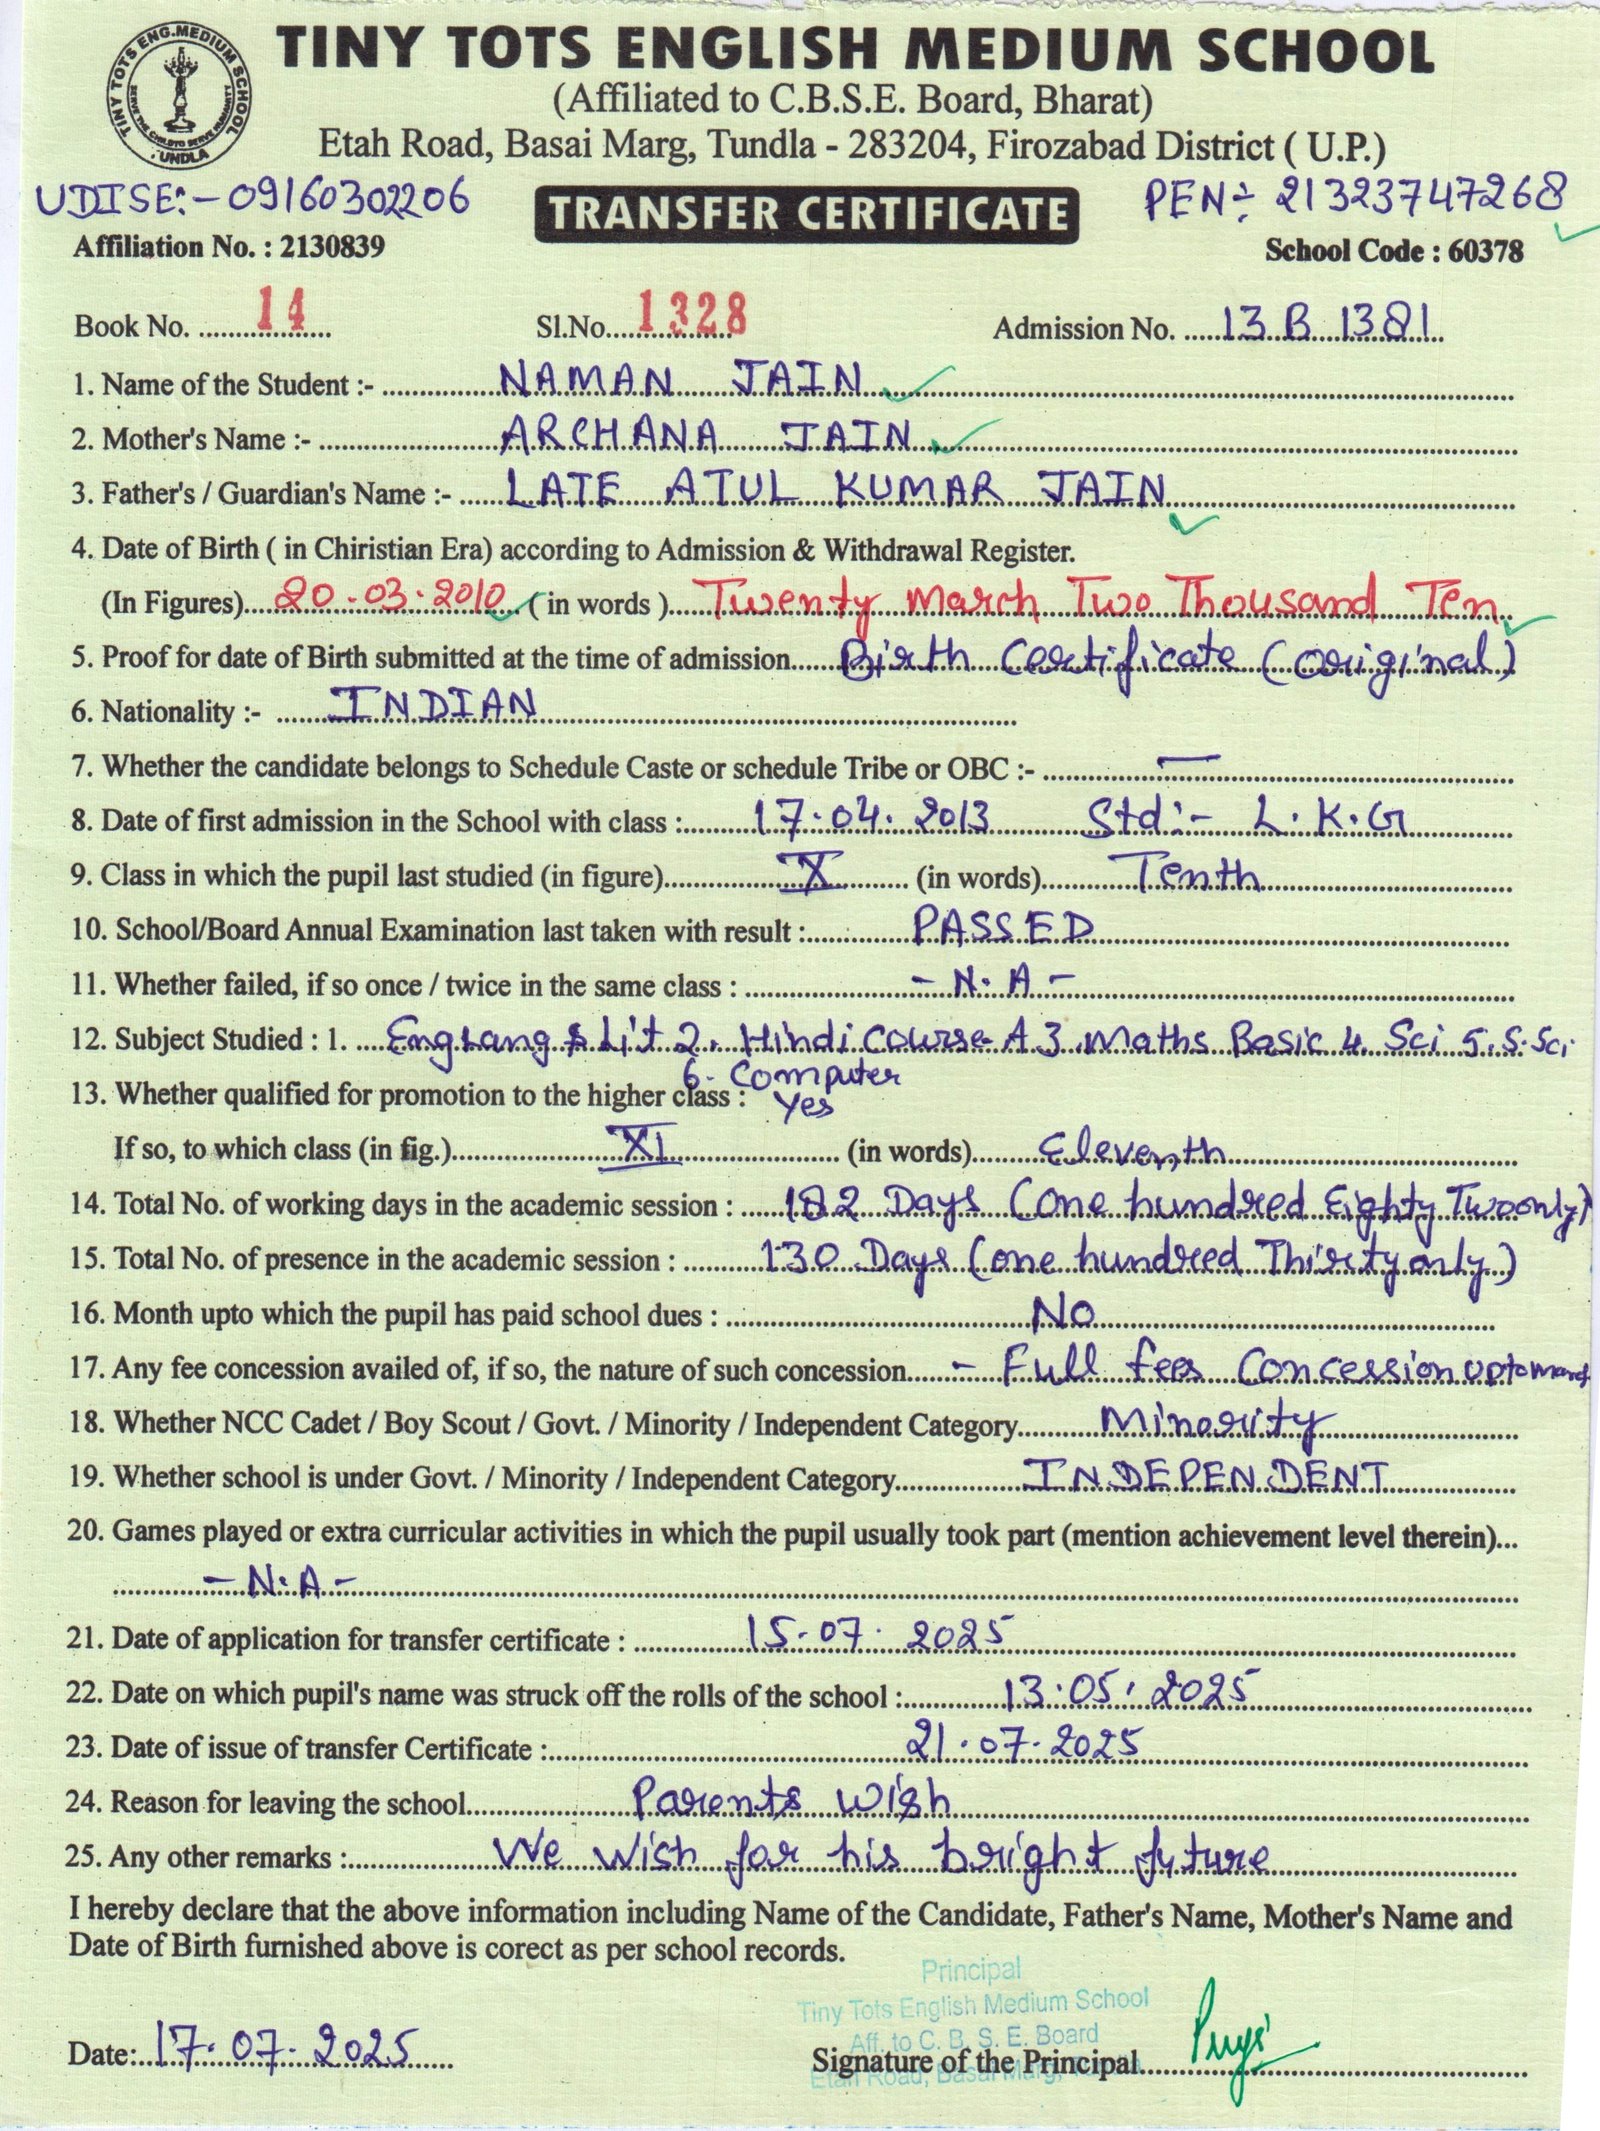 TINY TOTS ENG.MEDIUM SCHOOL
SERVE THE CHILD TO SERVE HUMANITY
TUNDLA
TINY TOTS ENGLISH MEDIUM SCHOOL
(Affiliated to C.B.S.E. Board, Bharat)
Etah Road, Basai Marg, Tundla - 283204, Firozabad District ( U.P.)
UDISE:- 09160302206
TRANSFER CERTIFICATE
PEN÷ 21323747268
Affiliation No. : 2130839
School Code : 60378
Book No. 14 Sl.No. 1328 Admission No. 13 B 1381
1. Name of the Student :- NAMAN JAIN
2. Mother's Name :- ARCHANA JAIN
3. Father's / Guardian's Name :- LATE ATUL KUMAR JAIN
4. Date of Birth ( in Chiristian Era) according to Admission & Withdrawal Register.
(In Figures) 20.03.2010 ( in words ) Twenty March Two Thousand Ten
5. Proof for date of Birth submitted at the time of admission Birth Certificate (original)
6. Nationality :- INDIAN
7. Whether the candidate belongs to Schedule Caste or schedule Tribe or OBC :- —
8. Date of first admission in the School with class : 17.04.2013 Std:- L.K.G
9. Class in which the pupil last studied (in figure) X (in words) Tenth
10. School/Board Annual Examination last taken with result : PASSED
11. Whether failed, if so once / twice in the same class : - N.A -
12. Subject Studied : 1. Eng Lang & Lit 2. Hindi Course-A 3. Maths Basic 4. Sci 5. S.Sci.
6. Computer
13. Whether qualified for promotion to the higher class : Yes
If so, to which class (in fig.) XI (in words) Eleventh
14. Total No. of working days in the academic session : 182 Days (One hundred Eighty Two only)
15. Total No. of presence in the academic session : 130 Days (one hundred Thirty only)
16. Month upto which the pupil has paid school dues : No
17. Any fee concession availed of, if so, the nature of such concession - Full fees Concession upto
18. Whether NCC Cadet / Boy Scout / Govt. / Minority / Independent Category Minority
19. Whether school is under Govt. / Minority / Independent Category INDEPENDENT
20. Games played or extra curricular activities in which the pupil usually took part (mention achievement level therein)...
- N.A -
21. Date of application for transfer certificate : 15.07.2025
22. Date on which pupil's name was struck off the rolls of the school : 13.05.2025
23. Date of issue of transfer Certificate : 21.07.2025
24. Reason for leaving the school Parents wish
25. Any other remarks : We wish for his bright future
I hereby declare that the above information including Name of the Candidate, Father's Name, Mother's Name and
Date of Birth furnished above is corect as per school records.
Principal
Tiny Tots English Medium School
Aff. to C. B. S. E. Board
Etah Road, Basai Marg,
Date: 17.07.2025 Signature of the Principal